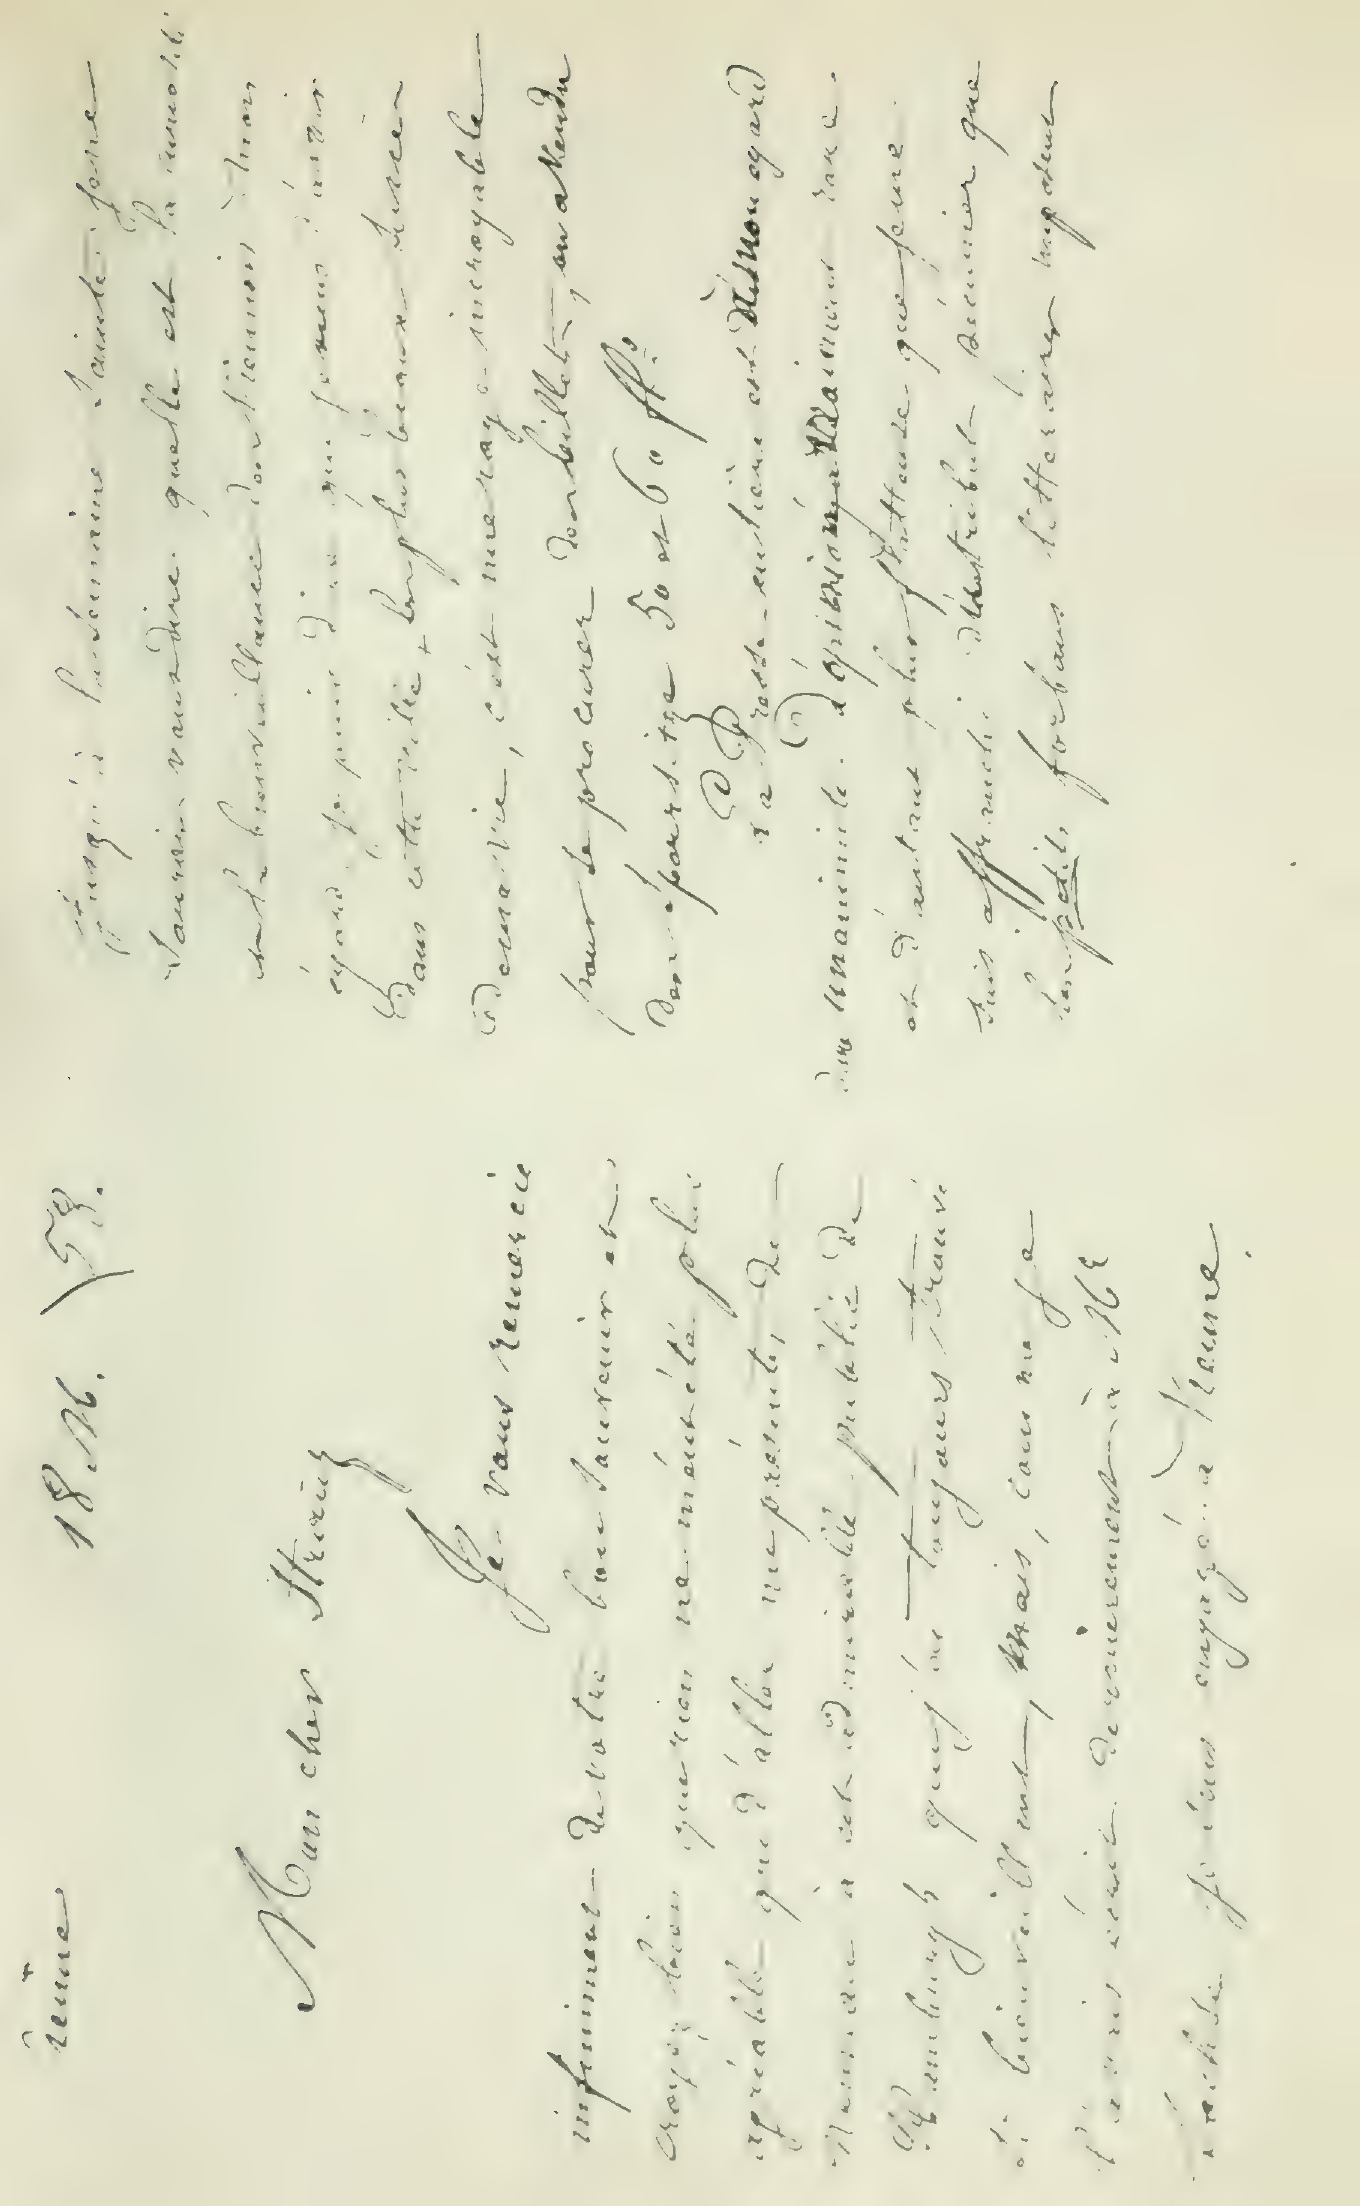 Vienne 18 M. \ 53.
Mon cher Strauss
Je vous remercie
infiniment de votre bon souvenir et
croyez bien que rien ne m'eut été plus
agréable que d'aller me présenter de
nouveau à cet admirable public de
Hambourg que j'ai toujours trouvé
si bienveillant, mais, comme je
l'avais écrit dernièrement à Mr
je suis engagé à Vienne.
jusqu'à la semaine sainte. Je ne
saurais vous dire quelle est la cordialité
et la bienveillance dont Viennois à mon
égard, je puis dire que je viens d'avoir
dans cette ville, les plus beaux succès
de ma vie, c'est une rage incroyable
pour se procurer des billets, on a vendu
des 50 et 60 ff.
La Presse entière est à mon égard
d'une unanimité d'opinion vraiment rare
et d'autant plus flatteuse que je me
suis affranchi du tribut pécunier que
les petits forbans littéraires imposent